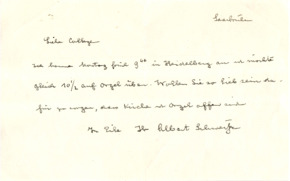 Saarbrücken
Liebe Collega
Ich komme Montag früh 9 00 in Heidelberg an u möchte
gleich 10 1/2 auf Orgel üben. Wollen Sie so lieb sein da-
für zu sorgen, dass Kirche u Orgel offen sind
In Eile Ihr Albert Schweitzer